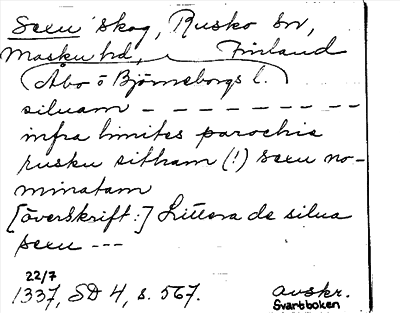 Sexu skog, Rusko sn,
Masku hd, Finland
(Åbo o Björneborgs l.)
siluam - - - - - - - - -
infra limites parochie
rusku sitham (!) sexu no-
minatam
[överskrift:] Littera de silua
sexu ---
22/7
1337, SD 4, s. 567. avskr.
Svartboken